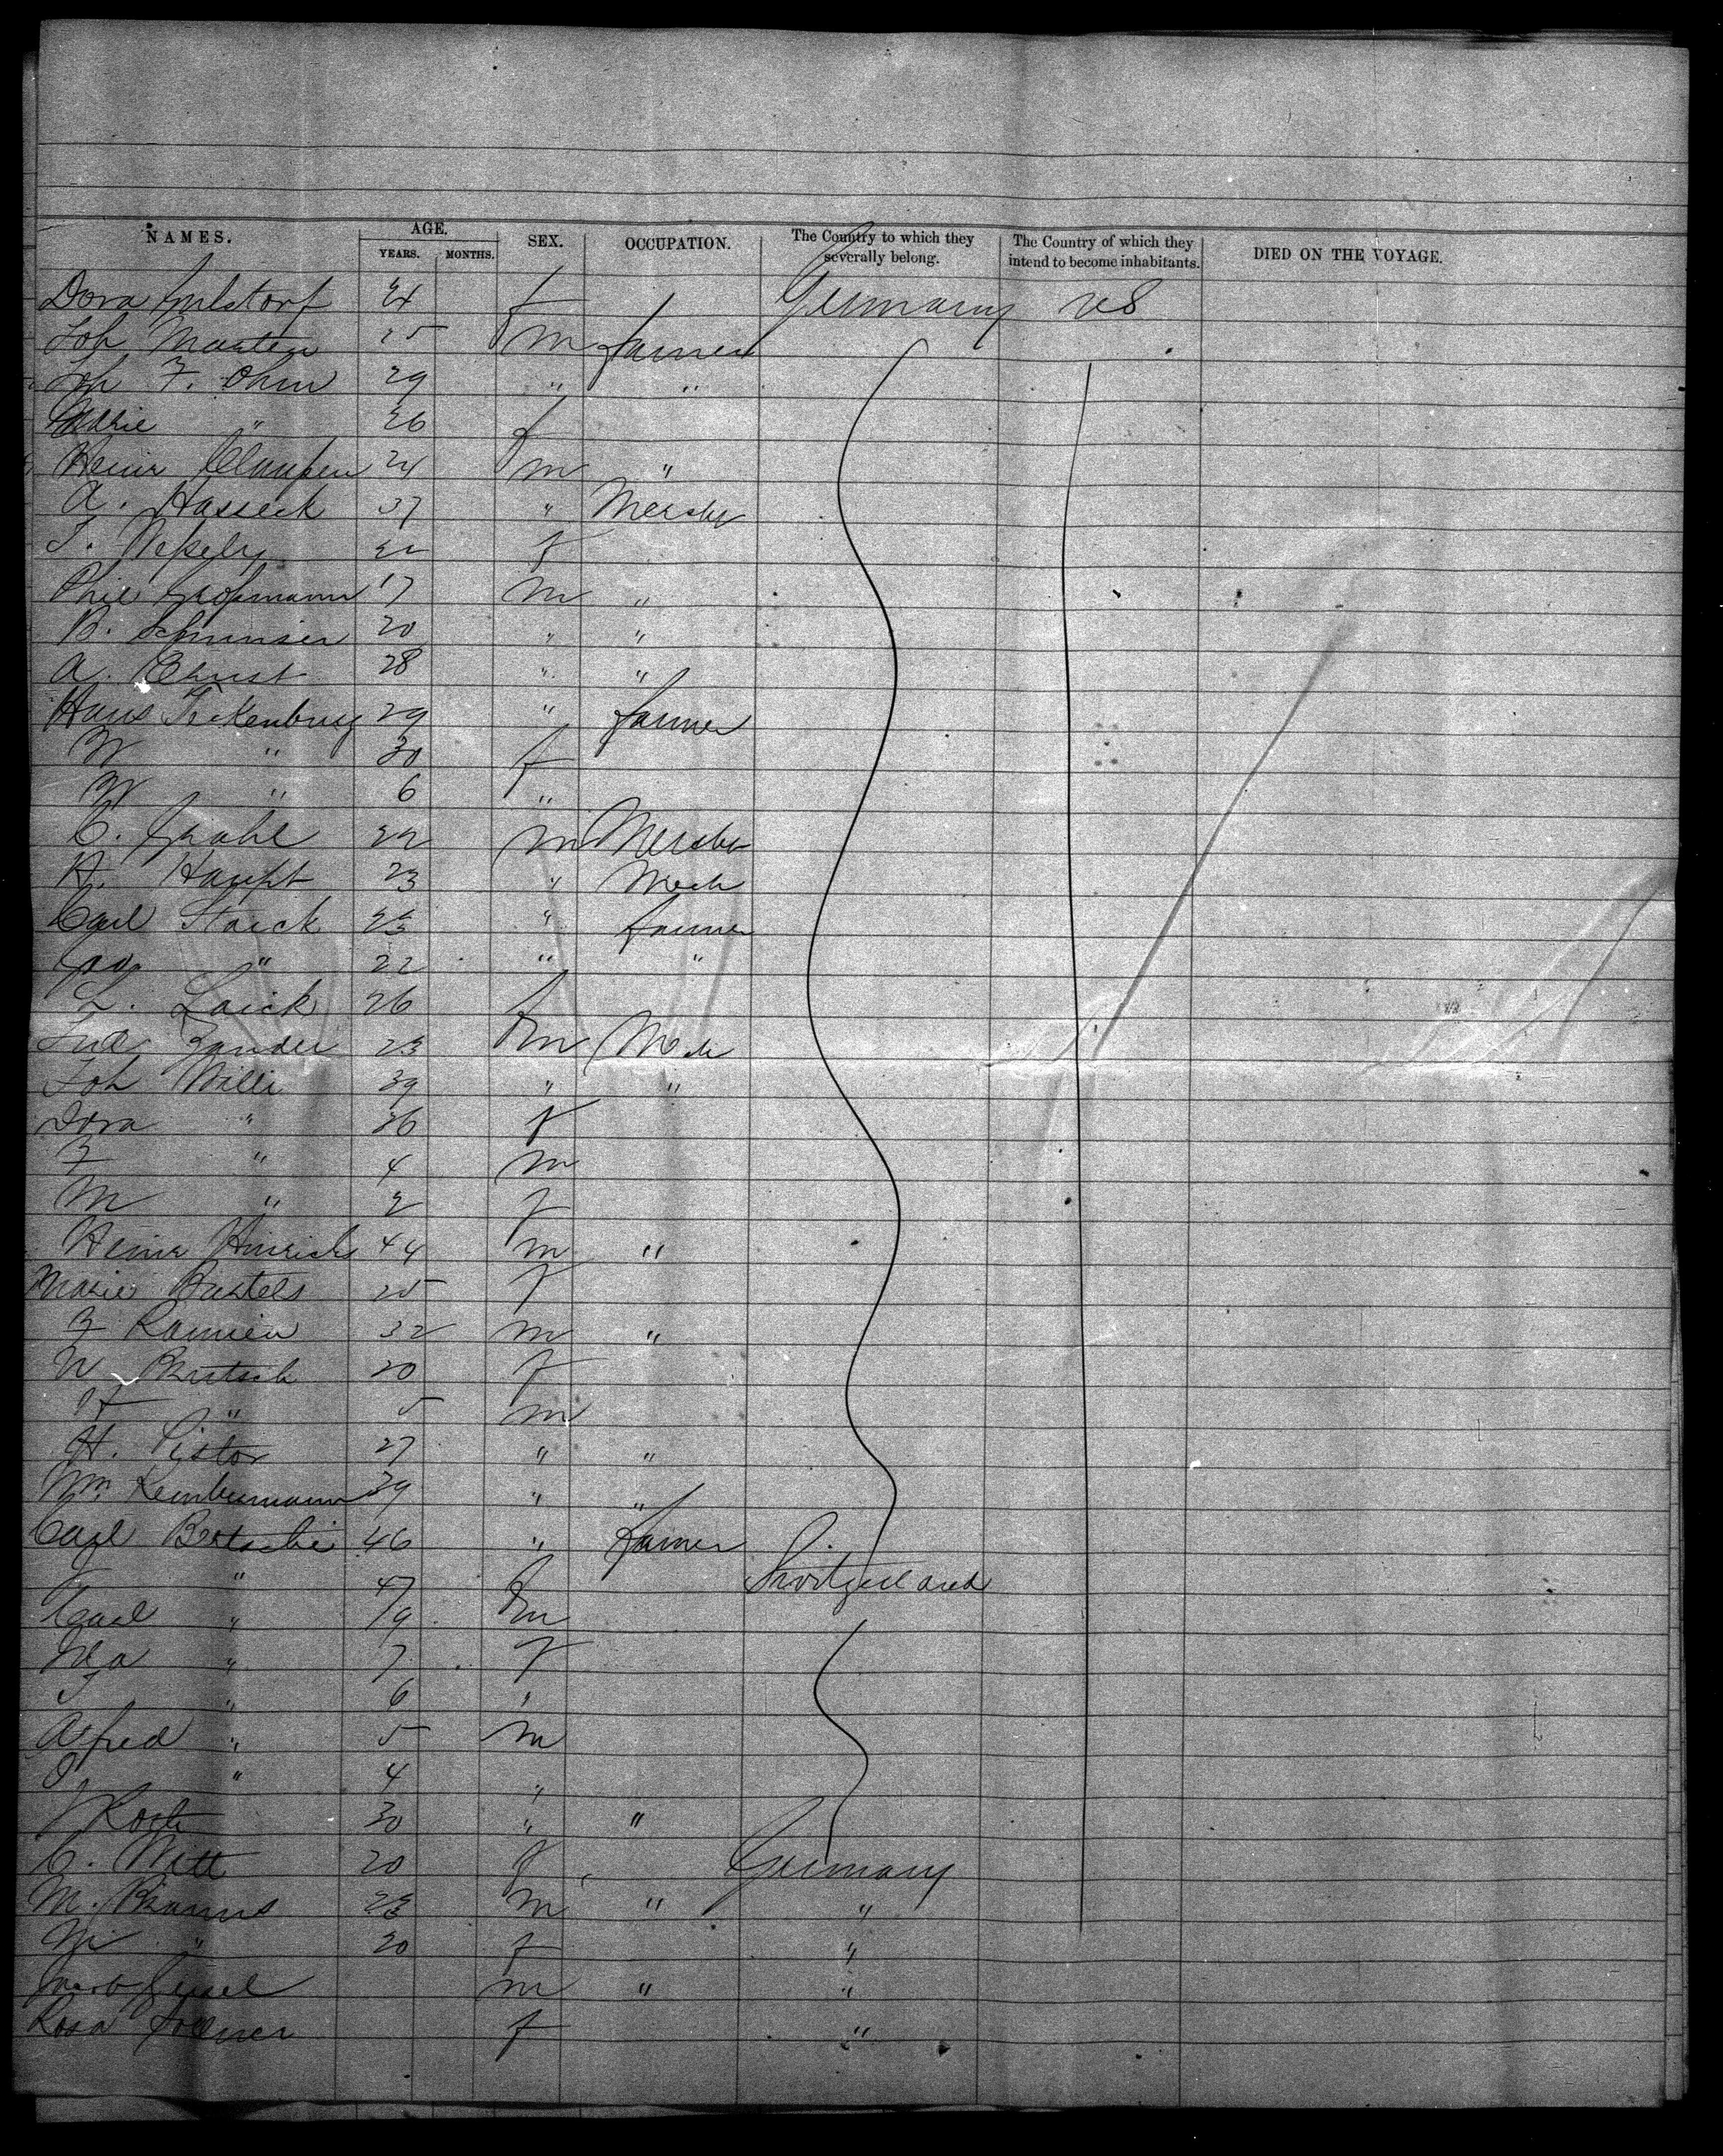 NAMES. AGE. SEX. OCCUPATION. The Country to which they severally belong. The Country of which they intend to become inhabitants. DIED ON THE VOYAGE.
YEARS. MONTHS.
Dora 24 f Germany US
Joh Marten 25 m farmer
Joh F. Ohm 29 " "
Marie " 26 f
Heinr Claußen 24 m "
A. Hasseck 37 " Merchr
T. 22 f
Phil Großmann 17 m "
B. 20 " "
A. Ernst 28 " "
Hans Teckenburg 29 " farmer
W " 30 f
W " 6 "
C. Grahl 22 m Merchr
H. Haupt 23 " Mech
Carl Starck 23 " farmer
" 22 " "
L. Laick 26 f
Lud Zander 23 m Mech
Joh Willi 39 " "
Dora " 36 f
F " 4 m
M " 2 f
Heinr Hinrichs 44 m "
Marie Bartels 25 f
F Ramien 32 m "
W Brutsch 20 f
" 5 m
H. Pistor 27 " "
Wm. 39 " "
Carl Bertschi 46 " farmer
" 47 f Switzerland
Carl " 19 m
Ida " 7 f
" 6 "
Alfred " 5 m
" 4 "
J Koch 30 " "
C. Witt 20 f Germany
M. Brauns 23 m " "
" 20 f "
m " "
Rosa f "